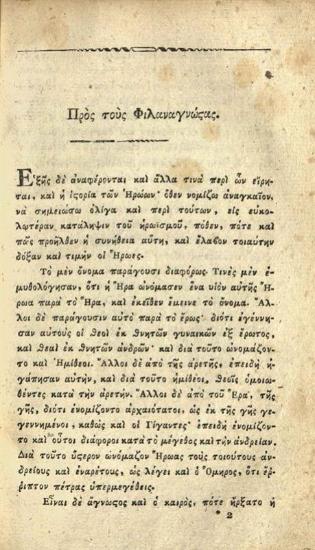 Πρὸς τοὺς Φιλαναγνώϛας.
Ἑξῆς δὲ ἀναφέρονται καὶ ἄλλα τινὰ περὶ ὧν εἴρη-
ται, καὶ ἡ ἱϛορία τῶν Ἡρώων· ὅθεν νομίζω ἀναγκαῖον,
νὰ σημειώσω ὀλίγα καὶ περὶ τούτων, εἰς εὐκο-
λωτέραν κατάληψιν τοῦ ἡρωϊσμοῦ, πόθεν, πότε καὶ
πῶς προῆλθεν ἡ συνήθεια αὕτη, καὶ ἔλαβον τοιαύτην
δόξαν καὶ τιμὴν οἱ Ἥρωες.
Τὸ μὲν ὄνομα παράγουσι διαφόρως· Τινὲς μὲν ἐ-
μυθολόγησαν, ὅτι ἡ Ἥρα ὠνόμασεν ἕνα υἱὸν αὑτῆς Ἥ-
ρωα παρὰ τὸ Ἥρα, καὶ ἐκεῖθεν ἔμεινε τὸ ὄνομα. Ἄλλοι
οἱ δὲ παράγουσιν αὐτὸ παρὰ τὸ ἔρως· διότι ἐγέννη-
σαν αὐτοὺς οἱ Θεοὶ ἐκ θνητῶν γυναικῶν ἐξ ἔρωτος,
καὶ Θεαὶ ἐκ θνητῶν ἀνδρῶν· καὶ διὰ τοῦτο ὠνομάζον-
το καὶ Ἡμίθεοι. Ἄλλοι δὲ ἀπὸ τῆς ἀρετῆς, ἐπειδὴ ἠ-
γάπησαν αὐτὴν, καὶ διὰ τοῦτο ἡμίθεοι, Θεοῖς ὁμοιω-
θέντες κατὰ τὴν ἀρετήν. Ἄλλοι δὲ ἀπὸ τοῦ Ἔρα, τῆς
γῆς, διότι ἐνομίζοντο ἀρχαιότατοι, ὡς ἐκ τῆς γῆς γε-
γεννημένοι, καθὼς καὶ οἱ Γίγαντες· ἐπειδὴ ἐνομίζον-
το καὶ οὗτοι διάφοροι κατὰ τὸ μέγεθος καὶ τὴν ἀνδρείαν.
Διὰ τοῦτο ὕϛερον ὠνόμαζον Ἥρωας τοὺς τοιούτους ἀν-
δρείους καὶ ἐναρέτους, ὡς λέγει καὶ ὁ Ὅμηρος, ὅτι ἔρ-
ῥιπτον πέτρας ὑπερμεγέθεις.
Εἶναι δὲ ἄγνωϛος καὶ ὁ καιρὸς, πότε ἤρξατο ἡ
* 2